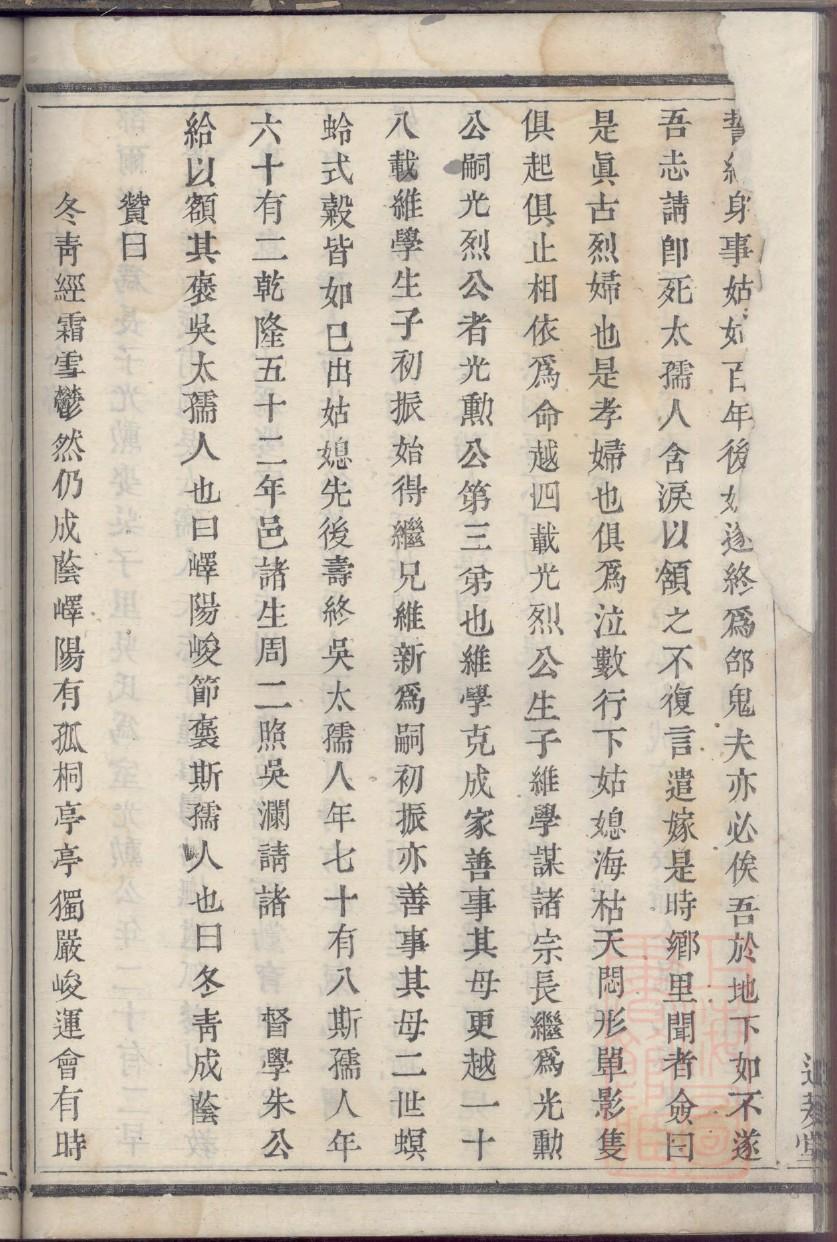 身事姑百年後遂終爲郃鬼夫亦必俟吾於地下如不遂
吾志請卽死太孺人含淚以頷之不復言遣嫁是時鄉里聞者僉曰
是眞古烈婦也是孝婦也俱爲泣數行下姑媳海枯天悶形單影隻
俱起俱止相依爲命越四載光烈公生子維學謀諸宗長繼爲光勳
公嗣光烈公者光勳公第三弟也維學克成家善事其母更越一十
八載維學生子初振始得繼兄維新爲嗣初振亦善事其母二世螟
蛉式穀皆如已出姑媳先後壽終吳太孺人年七十有八斯孺人年
六十有二乾隆五十二年邑諸生周二照吳瀾請諸 督學朱公
給以額其褒吳太孺人也曰嶧陽峻節褒斯孺人也曰冬靑成蔭
贊曰
冬靑經霜雪鬱然仍成蔭嶧陽有孤桐亭亭獨嚴峻運會有時